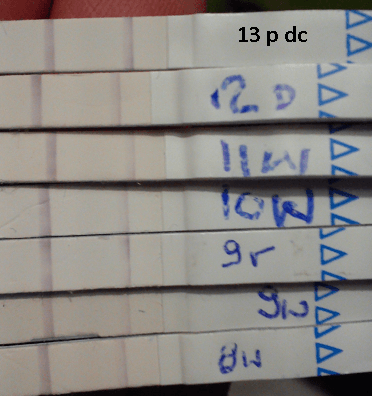 13 p dc
12 D
11W
10W
9r
9w
8w